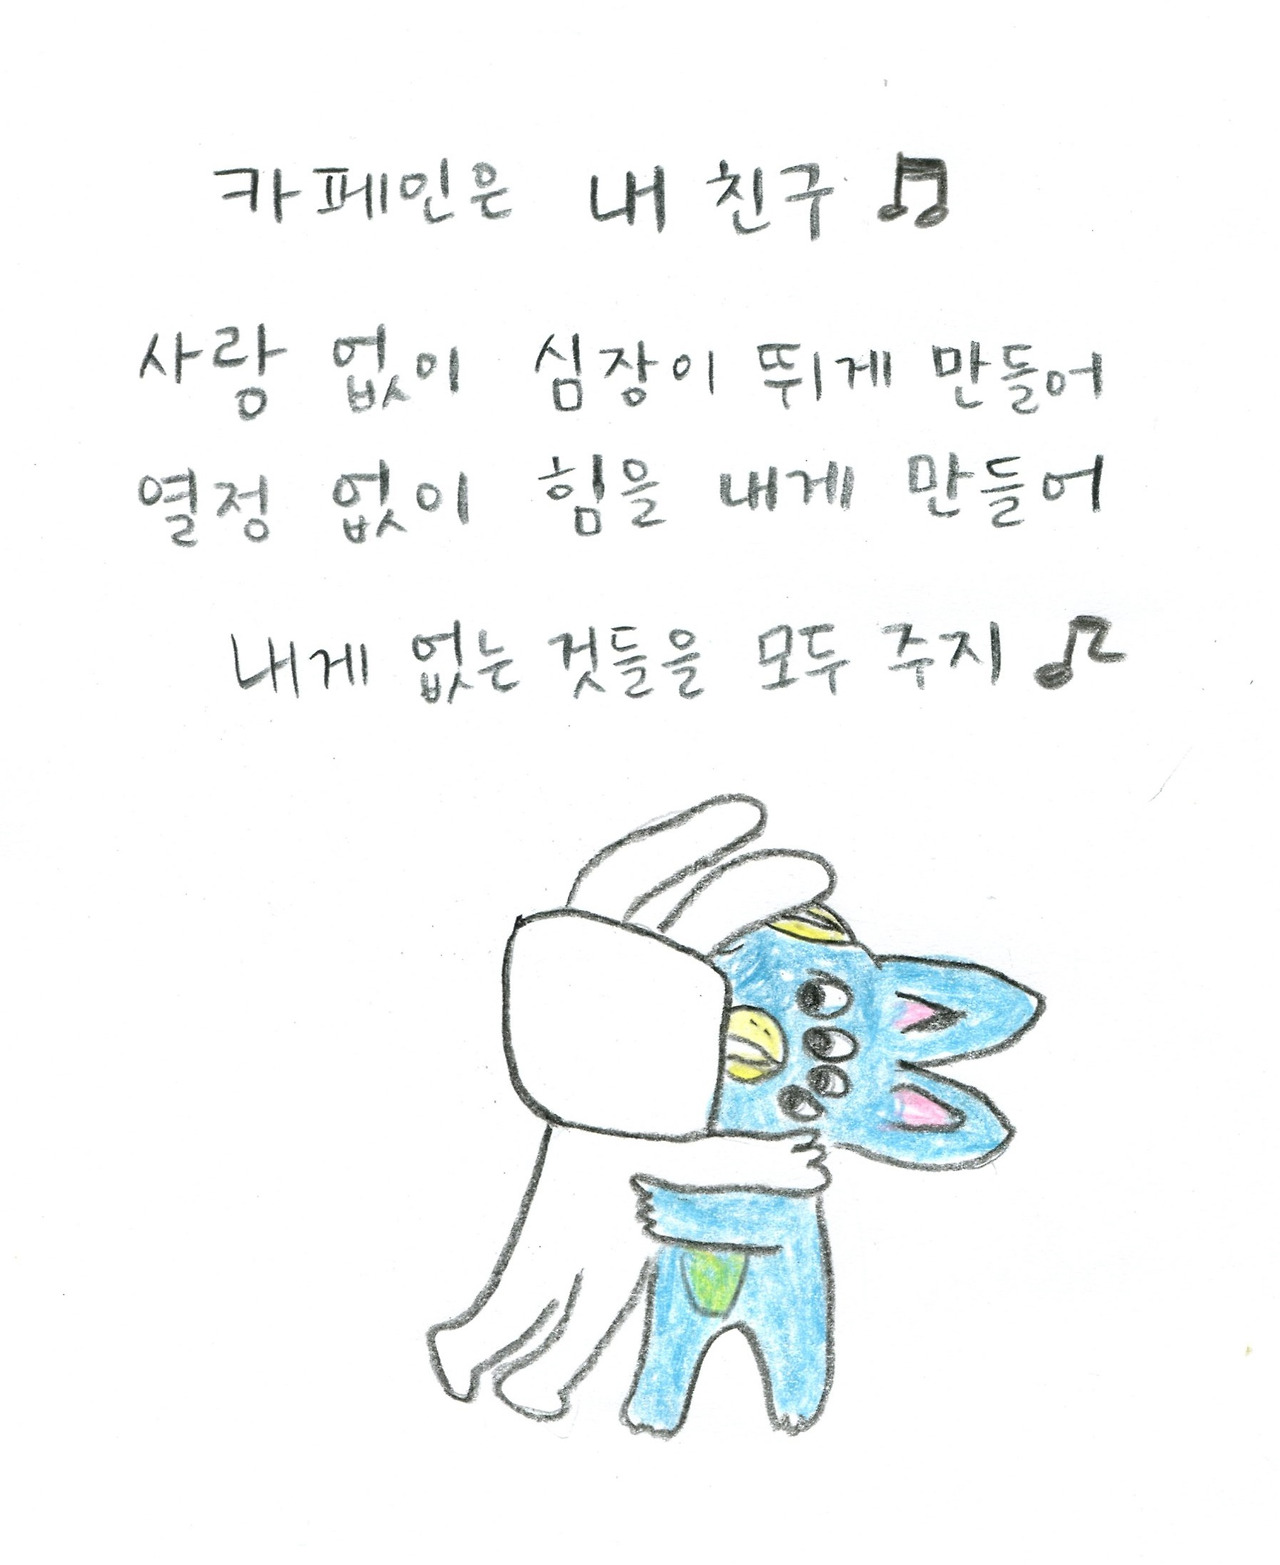 카페인은 내 친구 🎵
사랑 없이 심장이 뛰게 만들어
열정 없이 힘을 내게 만들어
내게 없는 것들을 모두 주지 🎵